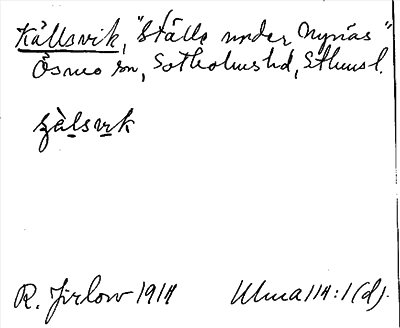 Källsvik, "Ställe under Nynäs"
Ösmo sn, Sotholms hd, Sthms l.
sɡàlsvik
R. Jirlow 1914 Ulma 114:1(d).